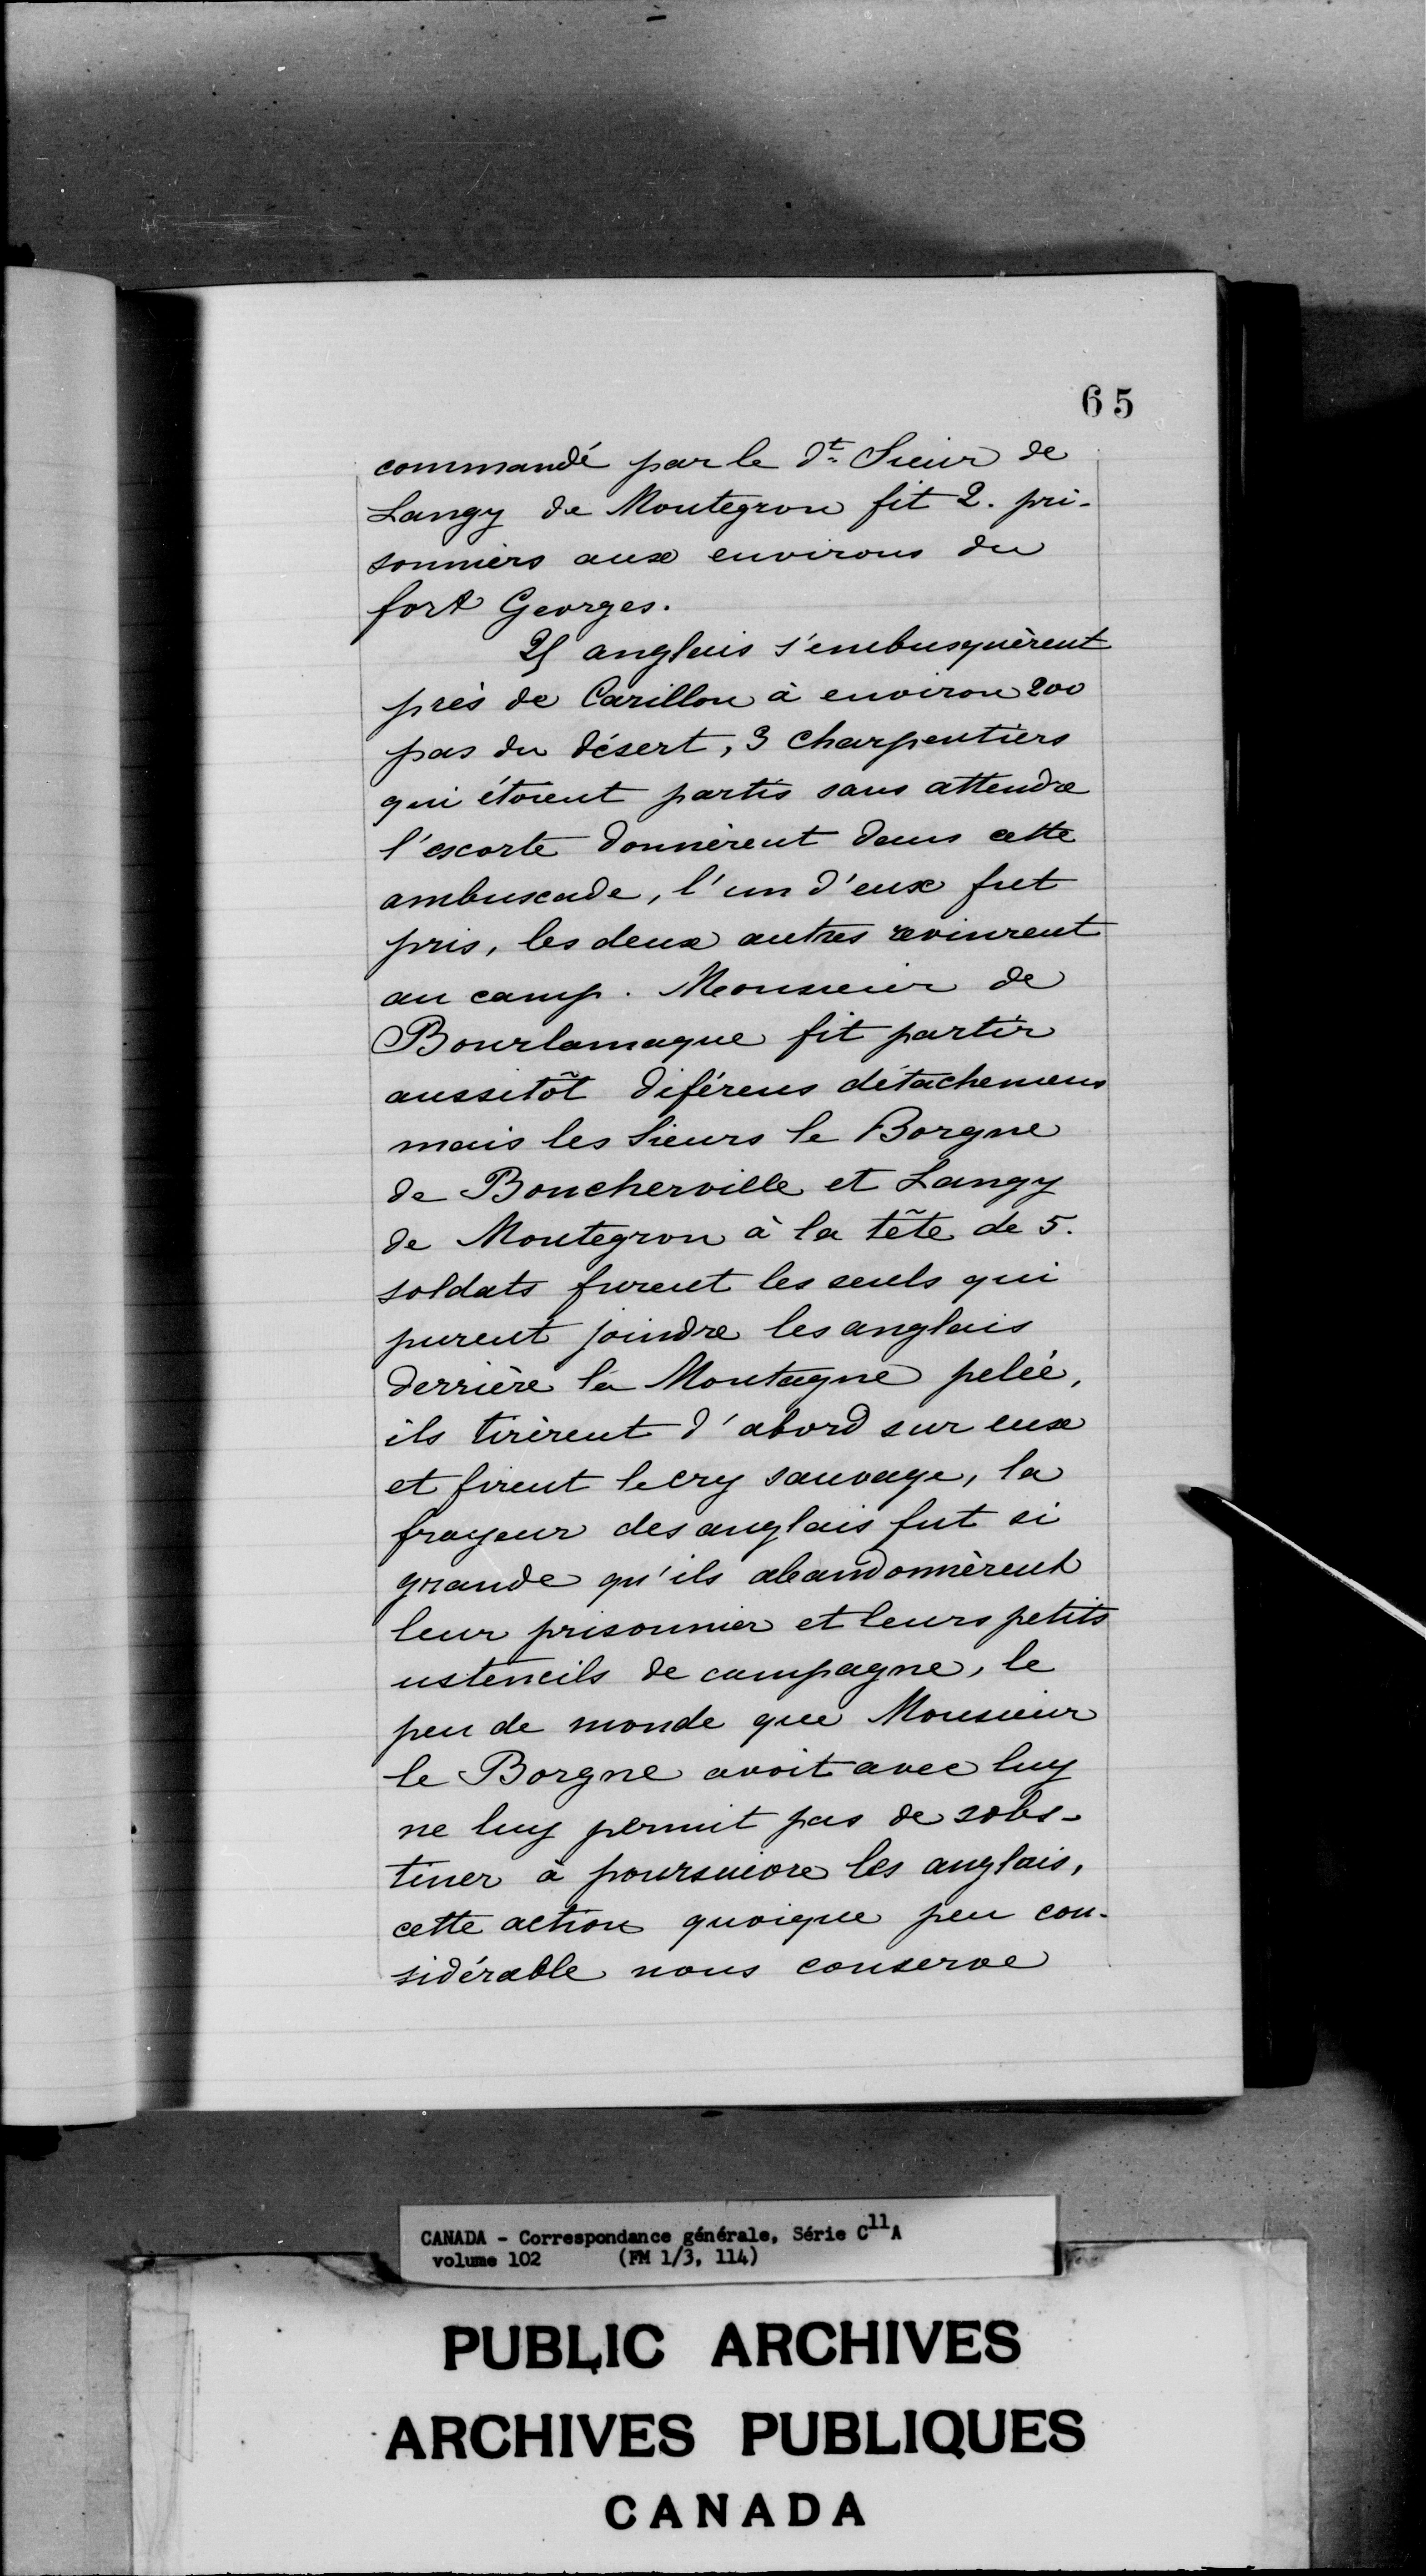 65
commandé par le dt. Sieur de
Langy de Montegron fit 2. pri-
sonniers aux environs du
fort Georges.
25 anglais s'embusquèrent
près de Carillon à environ 200
pas du désert, 3 charpentiers
qui étoient partis sans attendre
l'escorte donnèrent dans cette
ambuscade, l'un d'eux fut
pris, les deux autres revinrent
au camp. Monsieur de
Bourlamaque fit partir
aussitôt diférens détachemens
mais les Sieurs le Borgne
de Boucherville et Langy
de Montegron à la tête de 5.
soldats furent les seuls qui
purent joindre les anglais
derrière la Montagne pelée,
ils tirèrent d'abord sur eux
et firent le cry sauvage, la
frayeur des anglais fut si
grande qu'ils abandonnèrent
leur prisonnier et leurs petits
ustencils de campagne, le
peu de monde que Monsieur
le Borgne avoit avec luy
ne luy permit pas de sobs-
tiner à poursuivre les anglais,
cette action quoique peu con-
sidérable nous conserve
CANADA - Correspondance générale, Série C11A
volume 102 (FM 1/3, 114)
PUBLIC ARCHIVES
ARCHIVES PUBLIQUES
CANADA